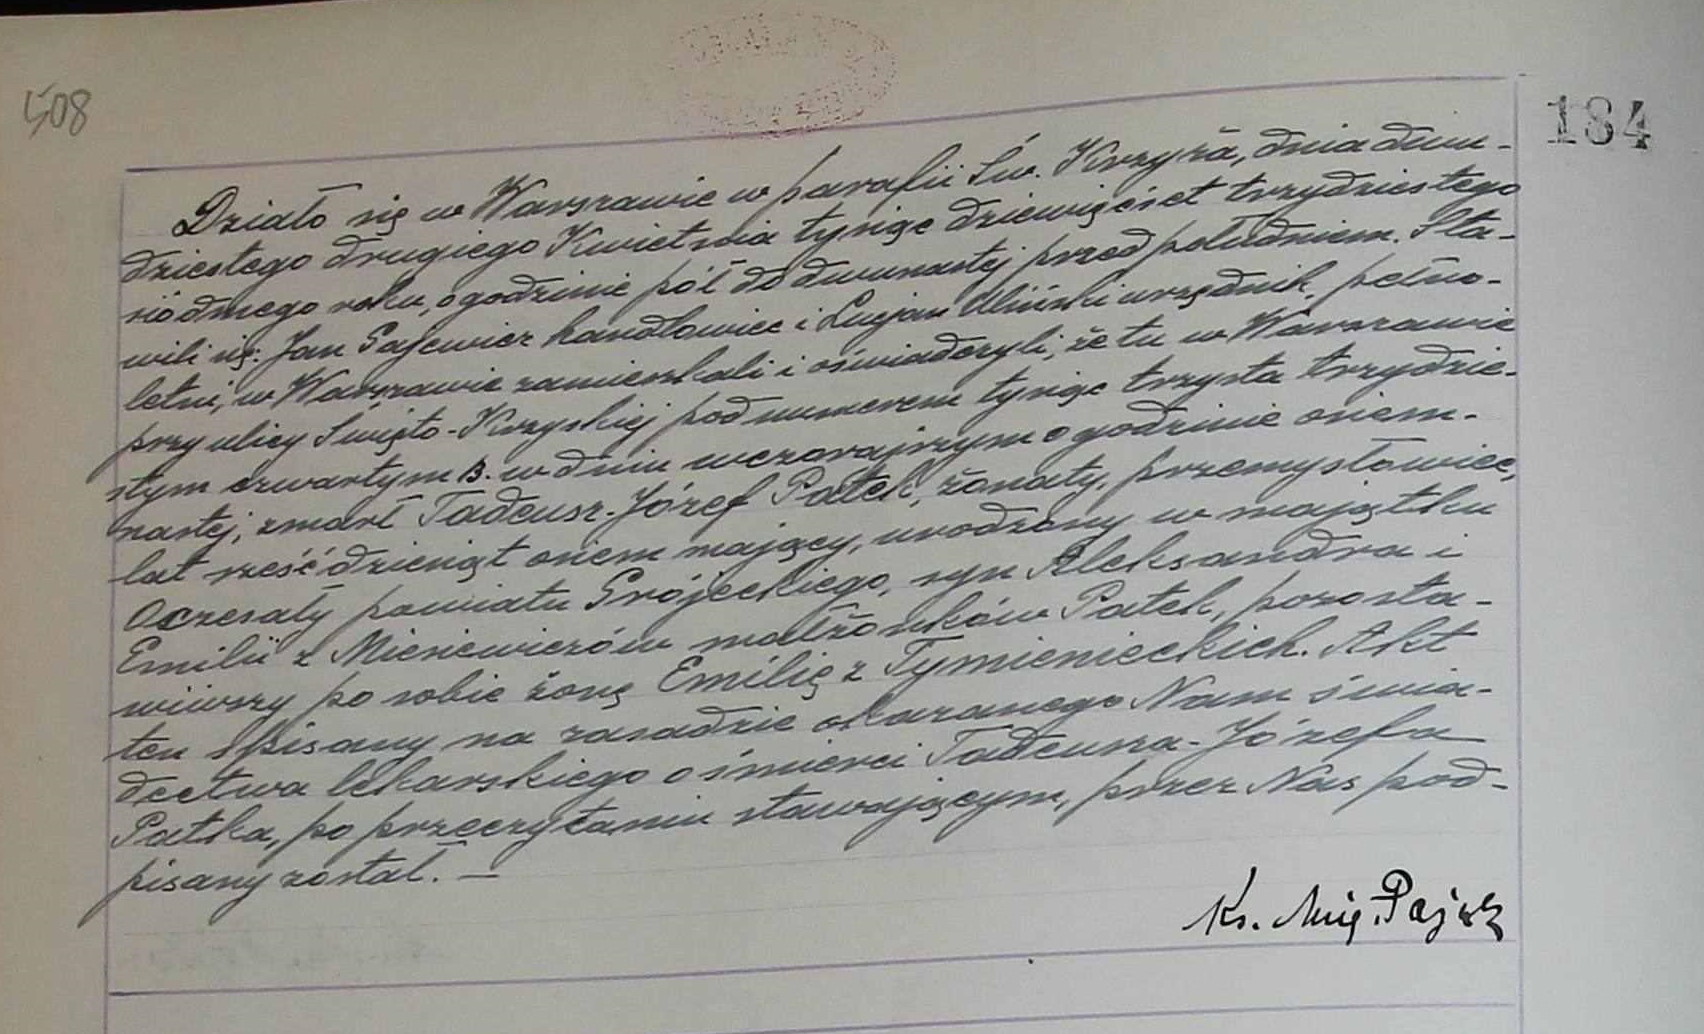 508
184
Działo się w Warszawie w parafii Św. Krzyża, dnia dwu-
dziestego drugiego Kwietnia tysiąc dziewięćset trzydziestego
siódmego roku, o godzinie pół do dwunastej przed południem. Sta-
wili się: Jan Sajewicz handlowiec i Lucjan Uliński urzędnik, pełno-
letni, w Warszawie zamieszkali i oświadczyli, że tu w Warszawie
przy ulicy Święto-Krzyskiej pod numerem tysiąc trzysta trzydzie-
stym czwartym B. w dniu wczorajszym o godzinie osiem-
nastej, zmarł Tadeusz-Józef Patek, żonaty, przemysłowiec,
lat sześćdziesiąt osiem mający, urodzony w majątku
Oczesały powiatu Grójeckiego, syn Aleksandra i
Emilii z Miesiewiczów małżonków Patek, pozosta-
wiwszy po sobie żonę Emilię z Tymienieckich. Akt
ten spisany na zasadzie okazanego Nam świa-
dectwa lekarskiego o śmierci Tadeusza-Józefa
Patka, po przeczytaniu stawającym, przez Nas pod-
pisany został. —
Ks.